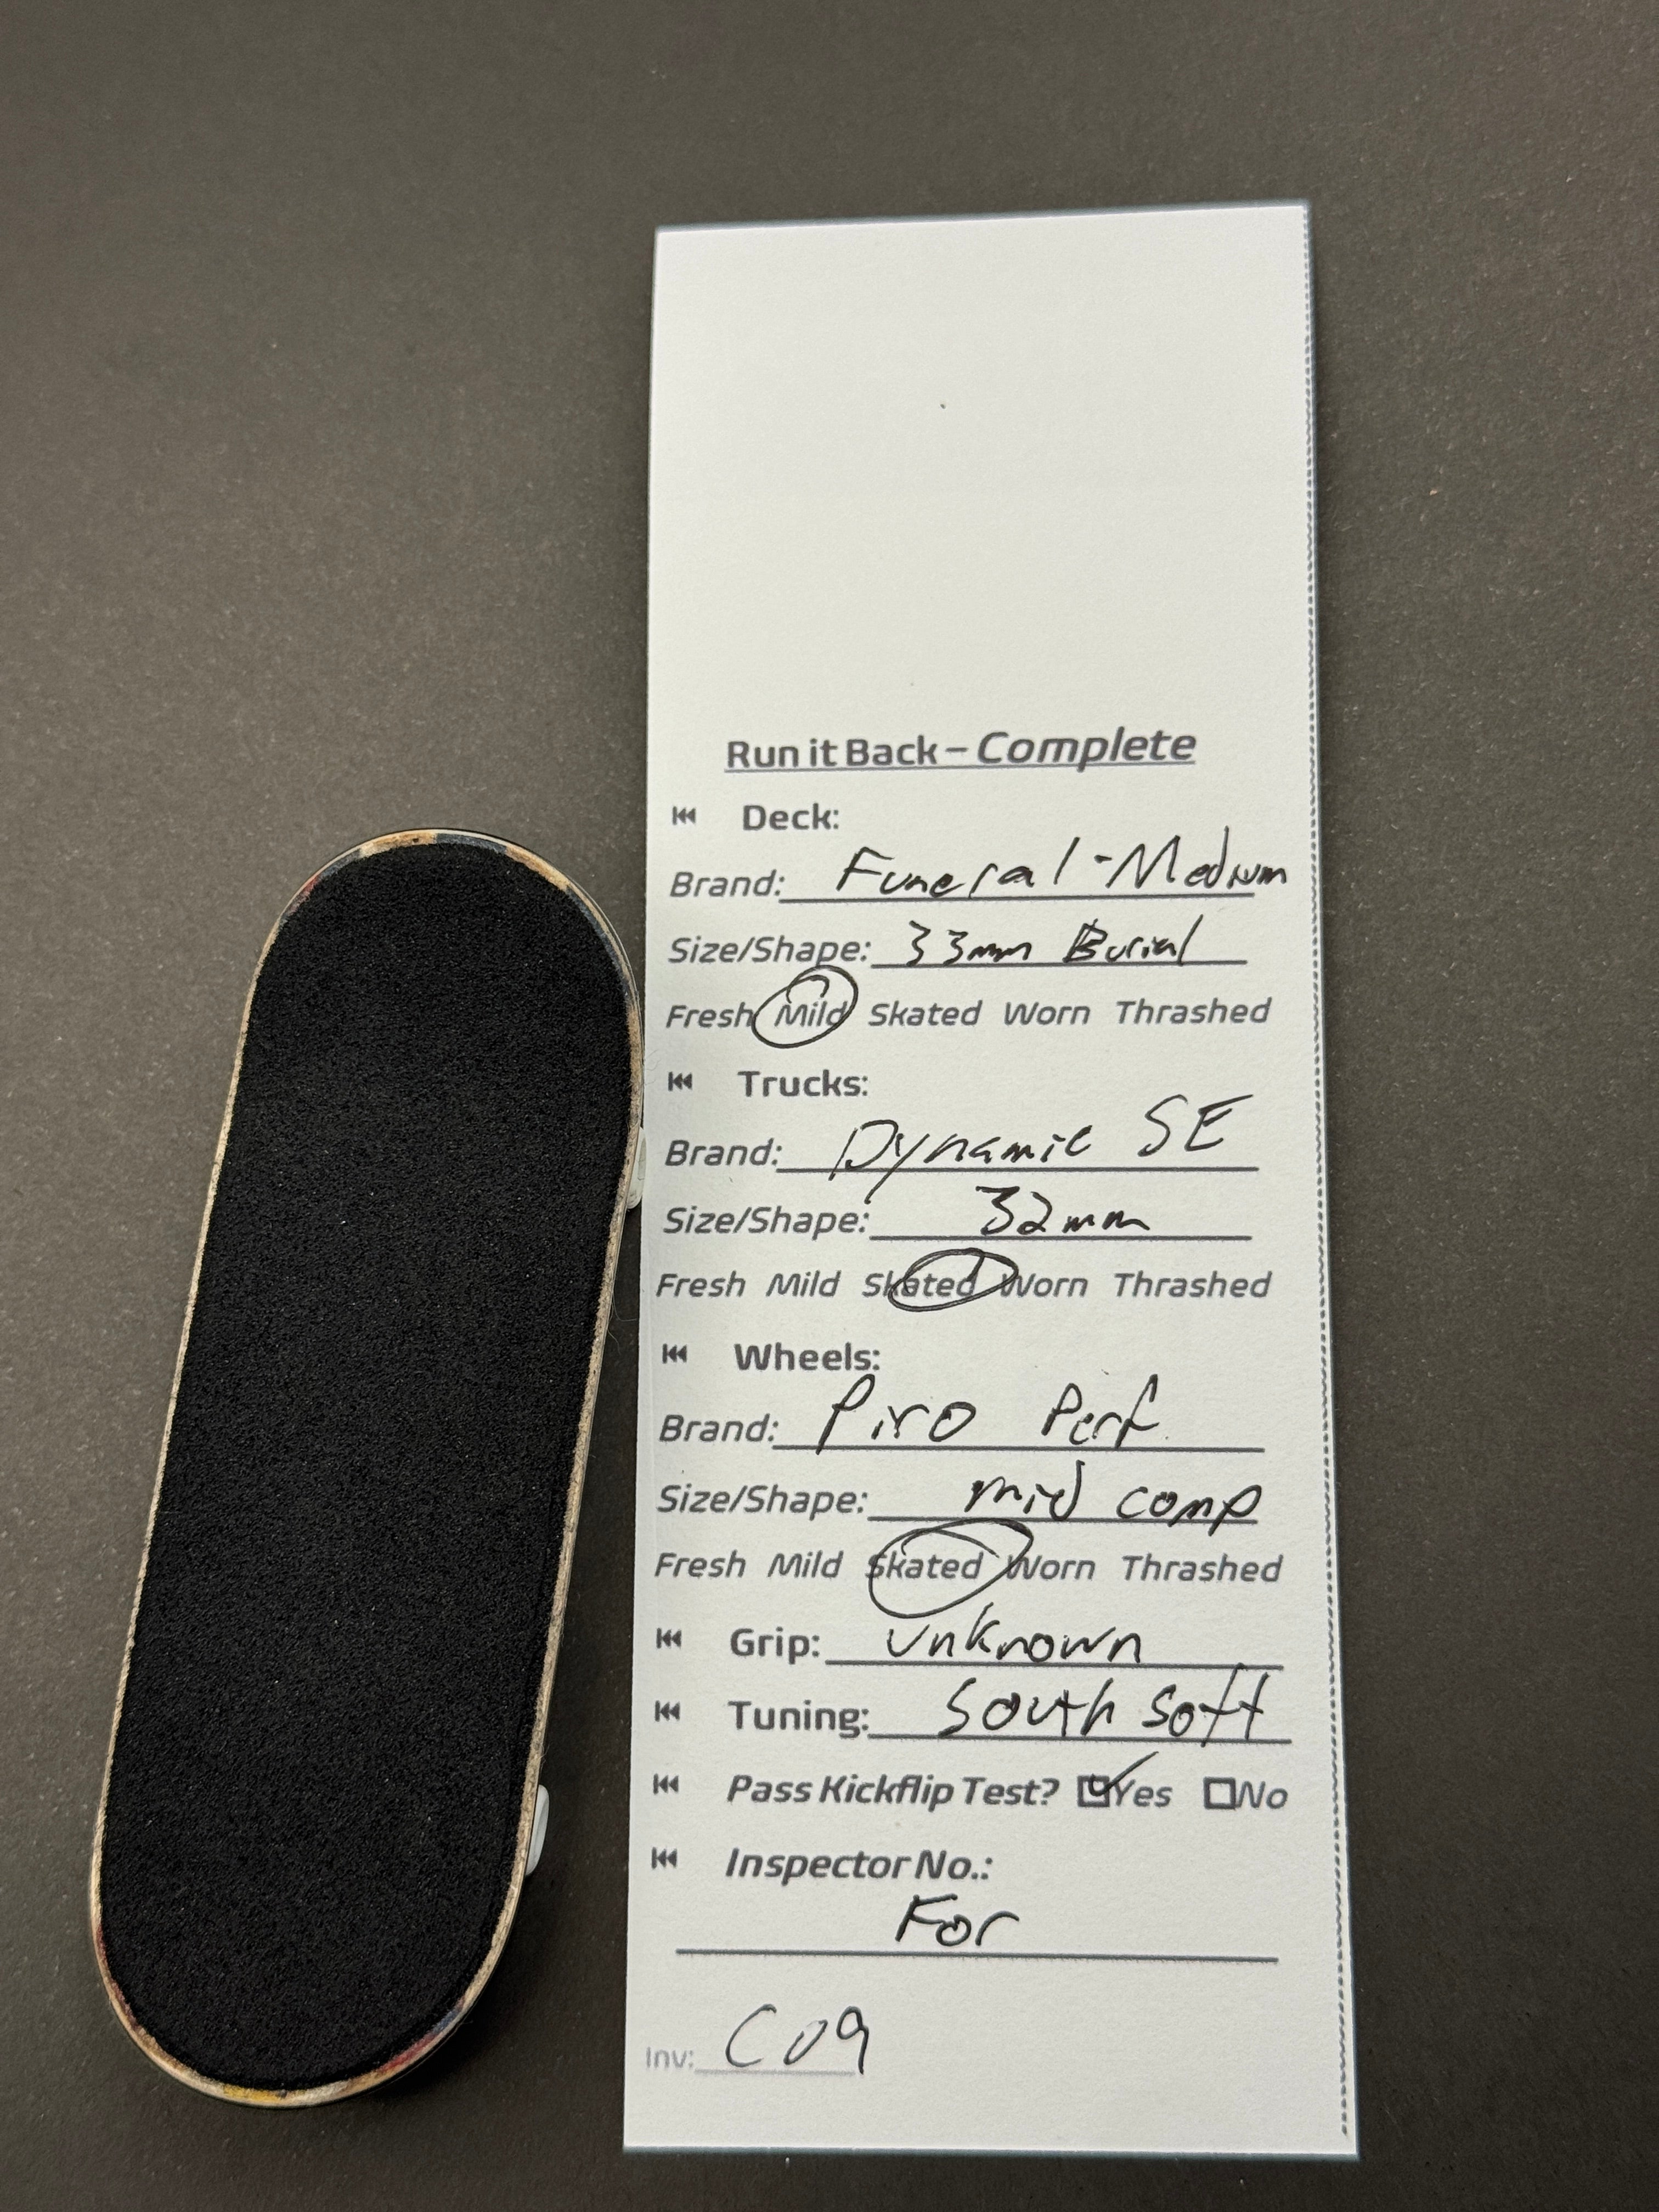 Run it Back – Complete
Deck:
Brand: Funeral - Medium
Size/Shape: 33mm Burial
Fresh Mild Skated Worn Thrashed
Trucks:
Brand: Dynamic SE
Size/Shape: 32mm
Fresh Mild Skated Worn Thrashed
Wheels:
Brand: Piro Perf
Size/Shape: mid comp
Fresh Mild Skated Worn Thrashed
Grip: unknown
Tuning: South Soft
Pass Kickflip Test? Yes No
Inspector No.:
For
Inv: C09